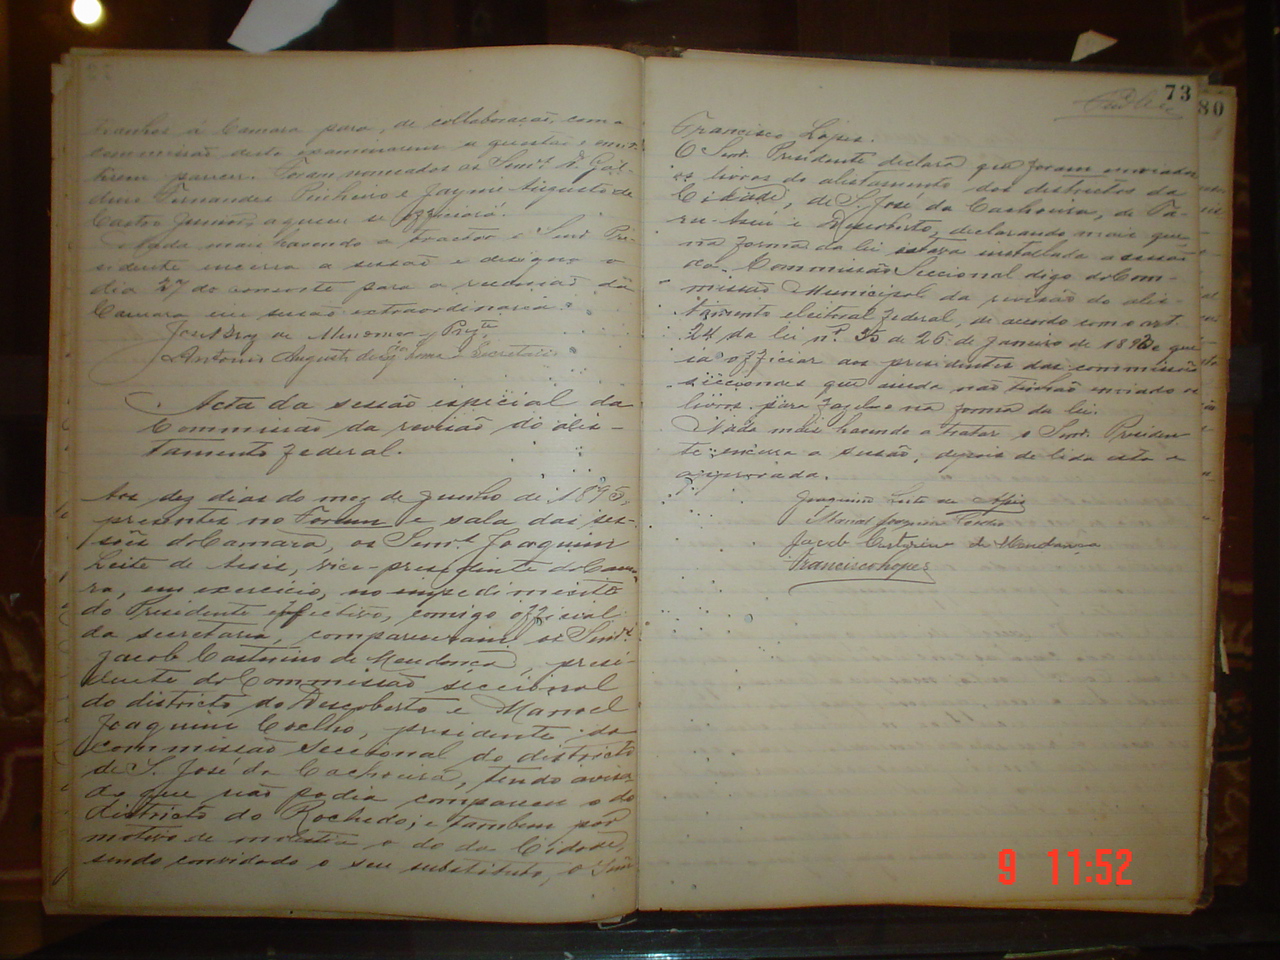 tranhos á Camara para, de collaboração com a
commissão desta examinarem a questão e emit-
tirem parecer. Foram nomeados os Senrs.
Fernandes Pinheiro e Jayme Augusto de
Castro Junior, a quem se officiará.
Nada mais havendo a tractar o Senr. Pre-
sidente encerra a sessão e designa o
dia 27 do corrente para a reunião da
Camara em sessão extraordinaria.
de Mendonça, Prste
Antonio Augusto Secretario
Acta da sessão especial da
Commissão da revisão do alis-
tamento federal.
Aos dez dias do mez de Junho de 1895,
presentes no Forum e sala das ses-
sões da Camara, os Senrs. Joaquim
Leite de Assis, vice-presidente da Cama-
ra, em exercicio, no impedimento
do Presidente effectivo, comigo official
da secretaria, compareceram os Senrs.
Jacob Castorino de Mendonça, presi-
dente da Commissão seccional
do districto do Descoberto e Manoel
Joaquim Coelho, presidente da
commissão seccional do districto
de S. José da Cachoeira, tendo avisa
do que não podia comparecer o do
districto do Rochedo; e tambem por
motivo de molestia o do da Cidade,
sendo convidado o seu substituto, o Senr.
73
80
Francisco Lopes.
O Senr. Presidente declara que foram enviados
os livros do alistamento dos districtos da
Cidade, de S. José da Cachoeira, de Ta-
ru-Assú e Descoberto, declarando mais que
na forma da lei estava installada a sessão
da Commissão Seccional digo da Com-
missão Municipal da revisão do alis-
tamento eleitoral federal, de accordo com o art.
24 da lei nº 35 de 26 de Janeiro de 1892 e que
ia officiar aos presidentes das commissões
seccionaes que ainda não tinhão enviado os
livros para fazel-o na forma da lei.
Nada mais havendo a tratar o Senr. Presiden
te encerra a sessão, depois de lida esta e
approvada.
Joaquim Leite de Assis
Manoel Joaquim Coelho
Jacob Castorino de Mendonça
Francisco Lopes
9 11:52